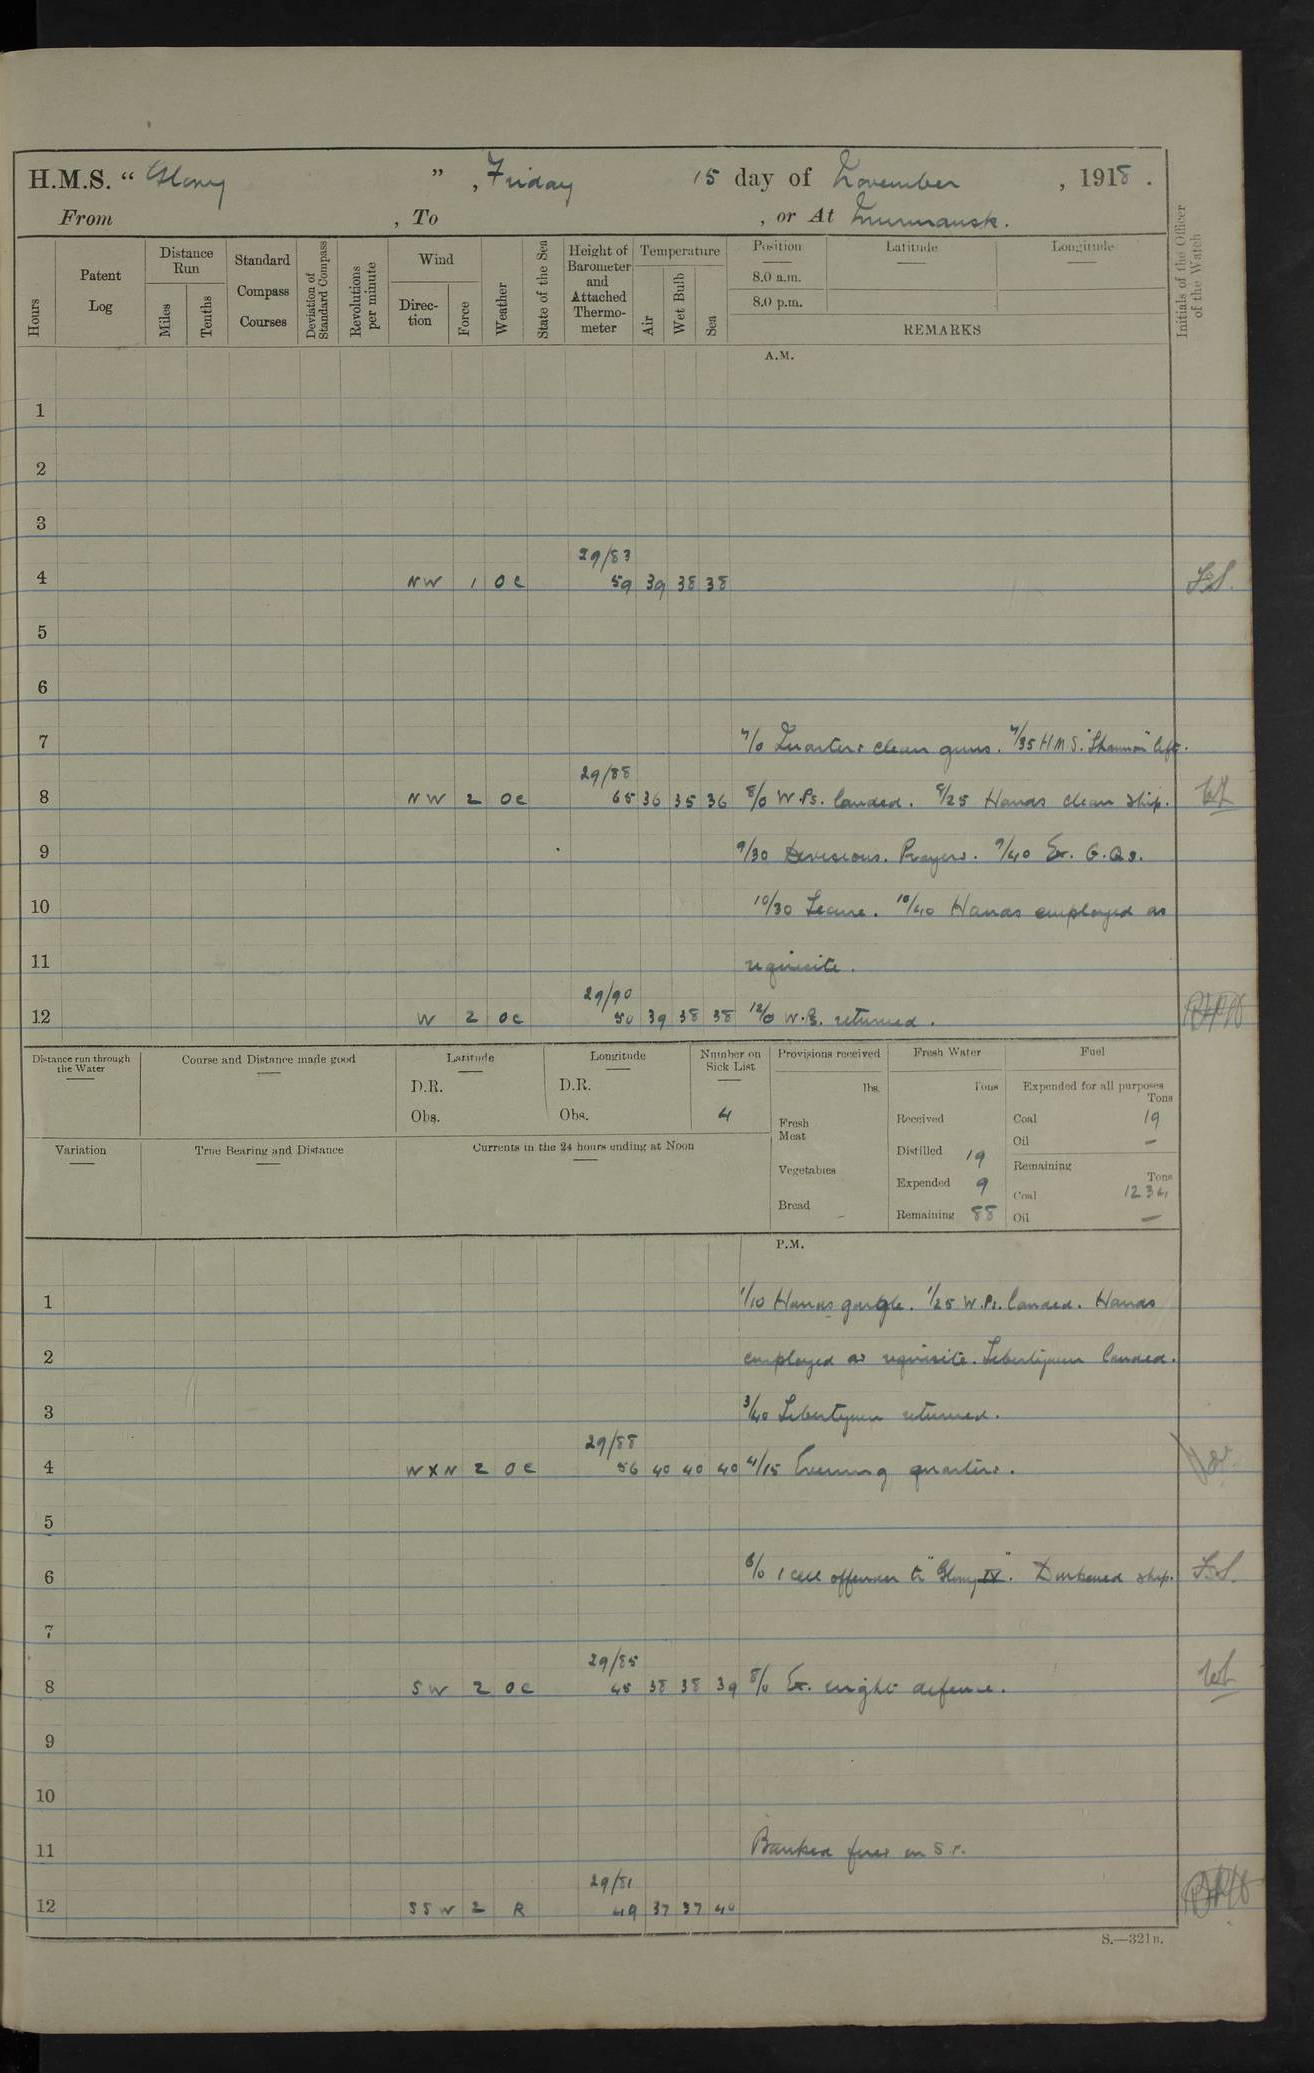 H.M.S. “ Glory ” , Friday 15 day of November , 1918 .
From , To , or At Murmansk.
Hours Patent Log Distance Run Miles Tenths Standard Compass Courses Deviation of Standard Compass Revolutions per minute Wind Direc-tion Force Weather State of the Sea Height of Barometer and Attached Thermo-meter Temperature Air Wet Bulb Sea Position Latitude Longitude
8.0 a.m.
8.0 p.m.
REMARKS
Initials of the Officer of the Watch
A.M.
1
2
3
29/83
4 NW 1 OC 59 39 38 38 F.S.
5
6
7 7/0 Quarters clean guns. 7/35 H.M.S. "Shannon" left.
29/88
8 NW 2 OC 65 36 35 36 8/0 W.Ps. landed. 8/25 Hands clean ship.
9 9/30 Divisions. Prayers. 9/40 Ex. G.Qs.
10 10/30 Leave. 10/40 Hands employed as
11 requisite.
29/90
12 W 2 OC 50 39 38 38 12/0 W.Ps. returned.
Distance run through the Water Course and Distance made good Latitude Longitude Number on Sick List Provisions received Fresh Water Fuel
lbs. Tons Expended for all purposes Tons
D.R. D.R.
Obs. Obs. 4
Fresh Meat Received Coal 19
Oil —
Variation True Bearing and Distance Currents in the 24 hours ending at Noon
Distilled 19 Remaining Tons
Vegetables Expended 9 Coal 1234
Bread Remaining 88 Oil —
P.M.
1 1/10 Hands gargle. 1/25 W.Ps. landed. Hands
2 employed as requisite. Libertymen landed.
3 3/40 Libertymen returned.
29/88
4 WXN 2 OC 56 40 40 40 4/15 Evening quarters.
5
6 6/0 1 cell offender to "Glory IV". Darkened ship. F.S.
7
29/85
8 SW 2 OC 45 38 38 39 8/0 Ex. night defence.
9
10
11 Banked fires in S r.
29/81
12 SSW 2 R 49 37 37 40
S.—321B.